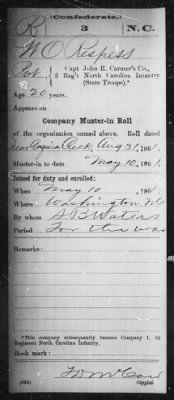 (Confederate.)
R 3 N.C.
W O Respess
Pvt, Capt John R. Carmer's Co.,
3 Reg't North Carolina Infantry
(State Troops).*
Age 20 years.
Appears on
Company Muster-in Roll
of the organization named above. Roll dated
Aug 31, 1861.
Muster-in to date May 10, 1861.
Joined for duty and enrolled:
When May 10, 1861.
Where Washington NC
By whom S B Waters
Period For the war
Remarks:
*This company subsequently became Company I, 3d
Regiment North Carolina Infantry.
Book mark:
Copyist.